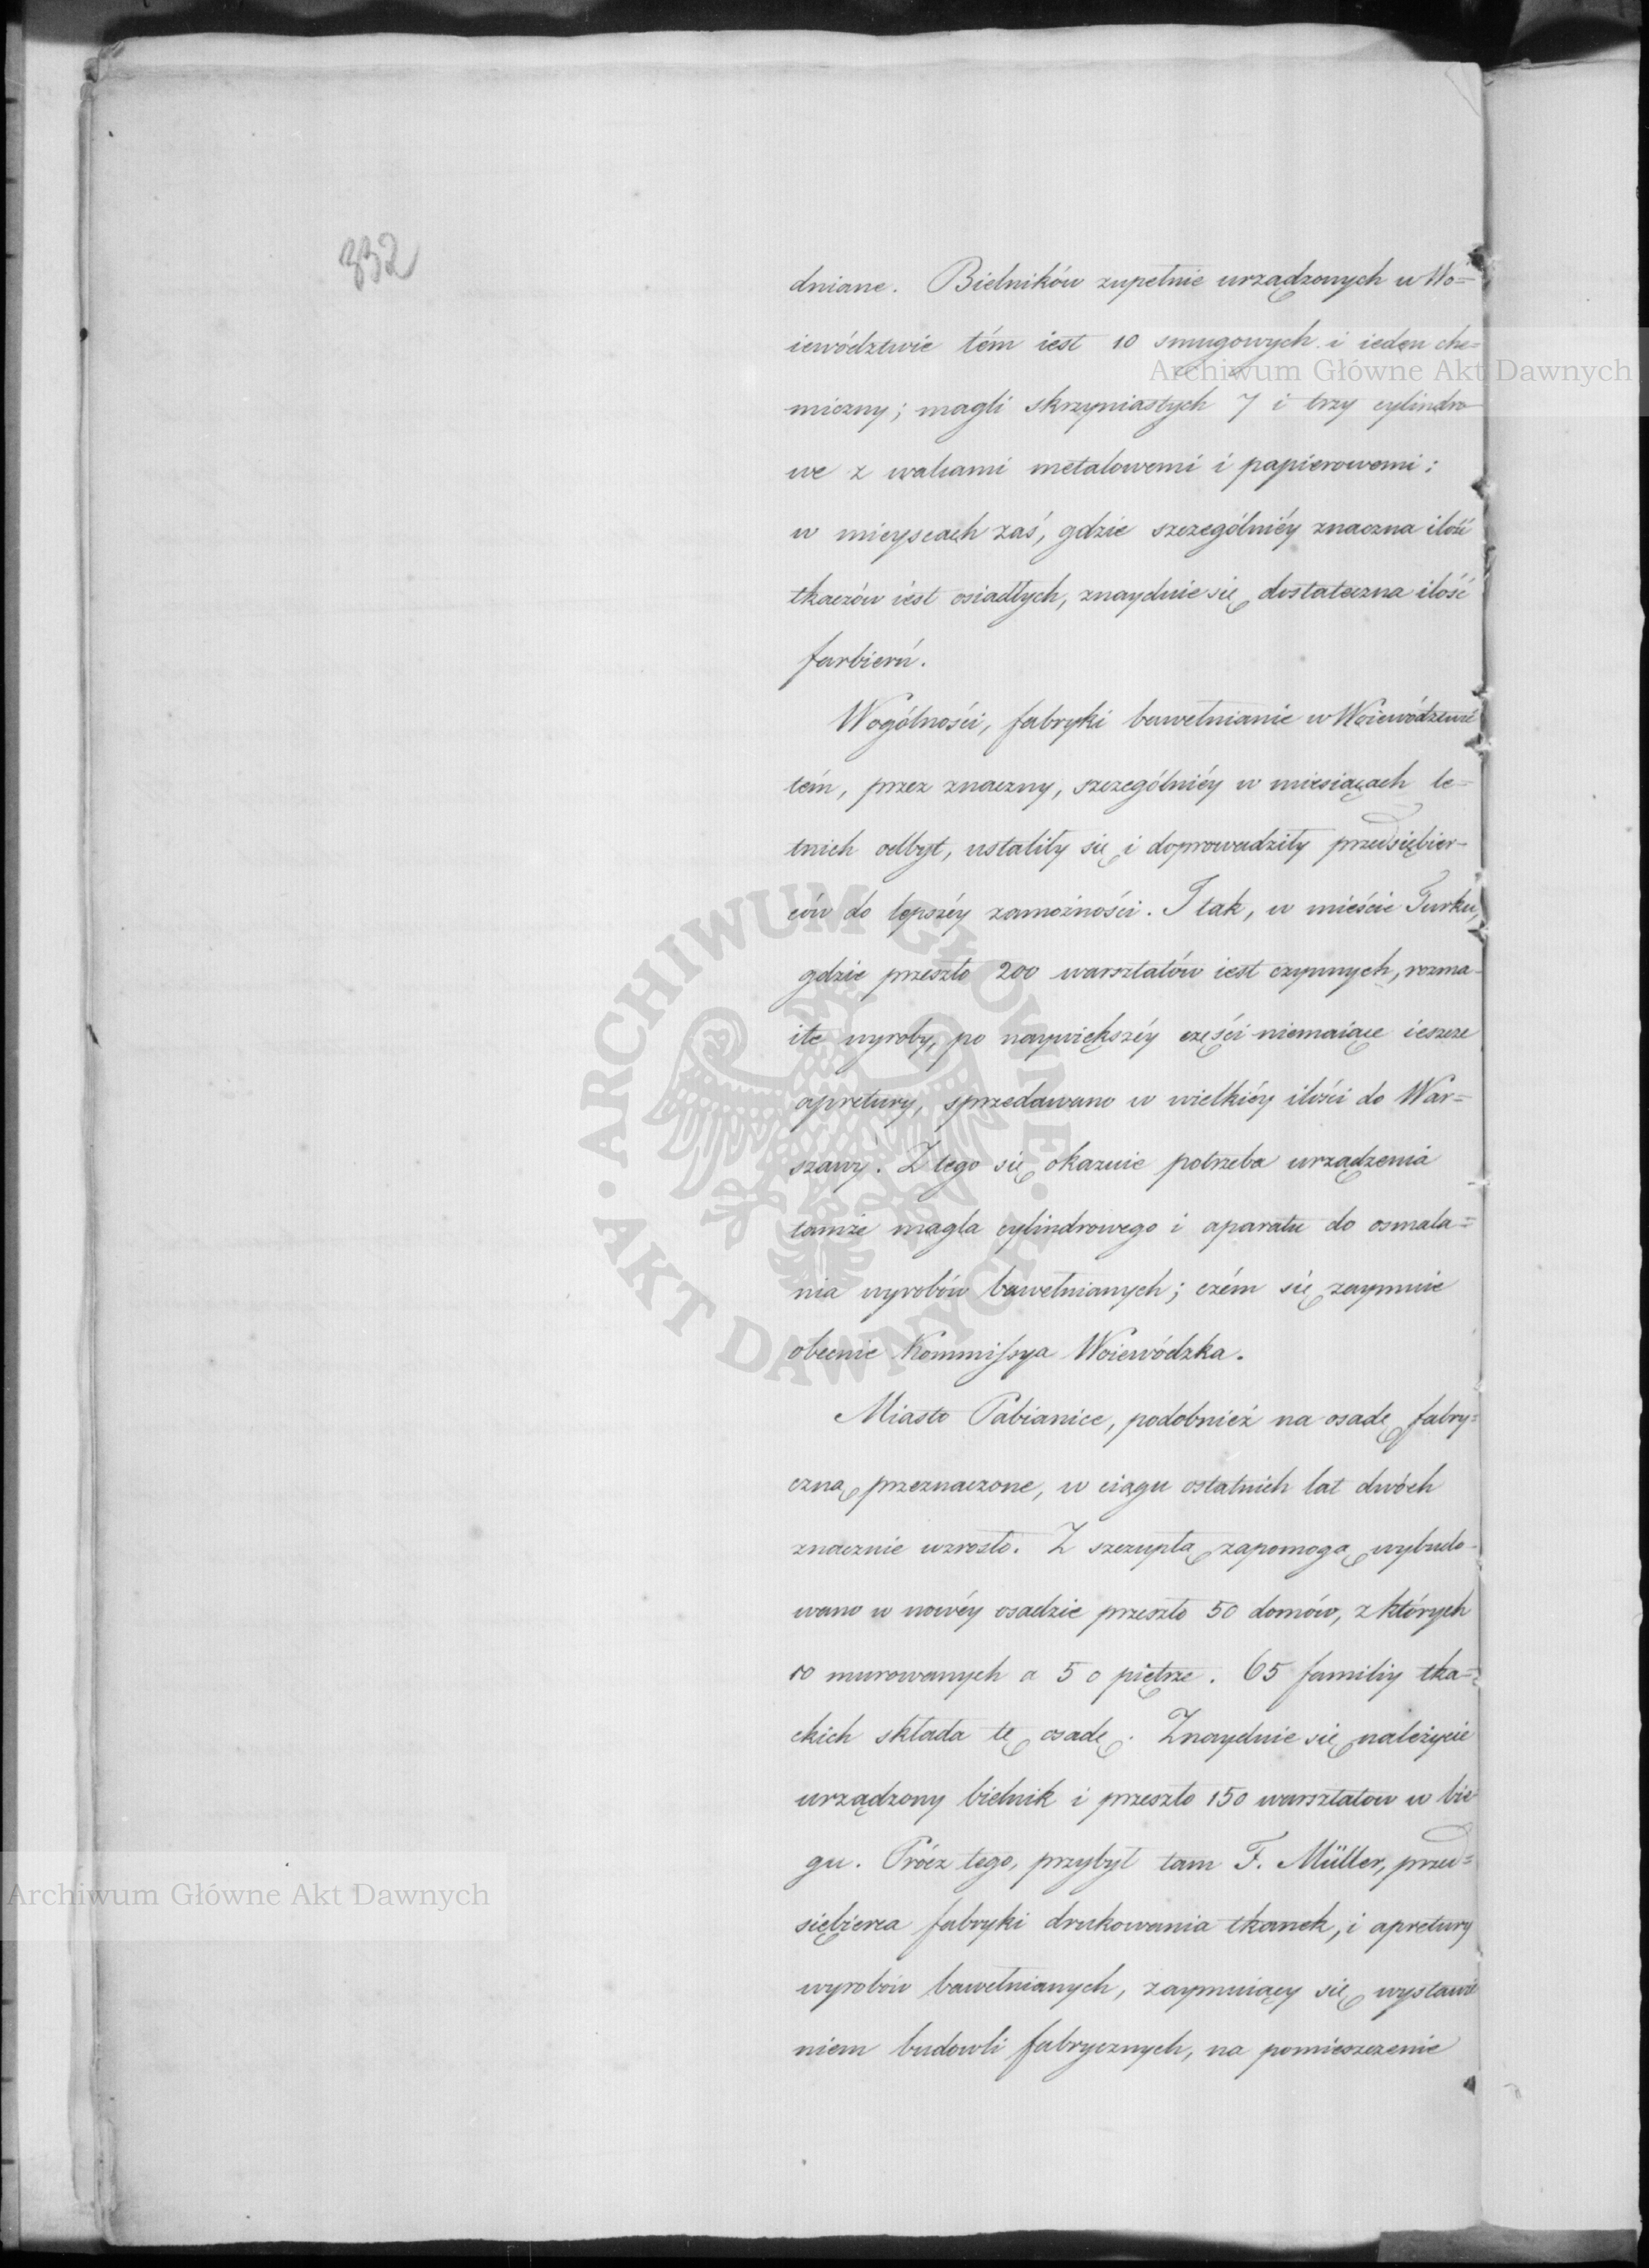 332
dniane. Bielników zupełnie urządzonych w Wo=
iewództwie tém iest 10 smugowych i ieden che=
miczny; magli skrzyniastych 7 i trzy cylindro-
we z walcami metalowemi i papierowemi:
w mieyscach zaś, gdzie szczególniéy znaczna ilość
tkaczów iest osiadłych, znayduie się dostateczna ilość
farbierń.
Wogólności, fabryki bawełnianie w Woiewództwie
tém, przez znaczny, szczególniéy w miesiącach le-
tnich odbyt, ustaliły się i doprowadziły przedsiębier-
ców do lepszéy zamożności. I tak, w mieście Turku,
gdzie przeszło 200 warsztatów iest czynnych, rozma-
ite wyroby, po naywiększéy części niemaiące ieszcze
apretury, sprzedawano w wielkiéy ilości do War=
szawy. Z tego się okazuie potrzeba urządzenia
tamże magla cylindrowego i aparatu do osmala=
nia wyrobów bawełnianych; czém się zaymuie
obecnie Kommissya Woiewódzka.
Miasto Pabianice, podobnież na osadę fabry=
czną przeznaczone, w ciągu ostatnich lat dwóch
znacznie wzrosło. Z szczupłą zapomogą wybudo-
wano w nowéy osadzie przeszło 50 domów, z których
10 murowanych a 5 o piętrze. 65 familiy tka=
ckich składa tę osadę. Znayduie się należycie
urządzony bielnik i przeszło 150 warsztatow w bie
gu. Prócz tego, przybył tam F. Müller, przed=
siębierca fabryki drukowania tkanek, i apretury
wyrobów bawełnianych, zaymuiący się wystawie
niem budowli fabrycznych, na pomieszczenie
Archiwum Główne Akt Dawnych
ARCHIWUM GŁÓWNE • AKT DAWNYCH •
Archiwum Główne Akt Dawnych